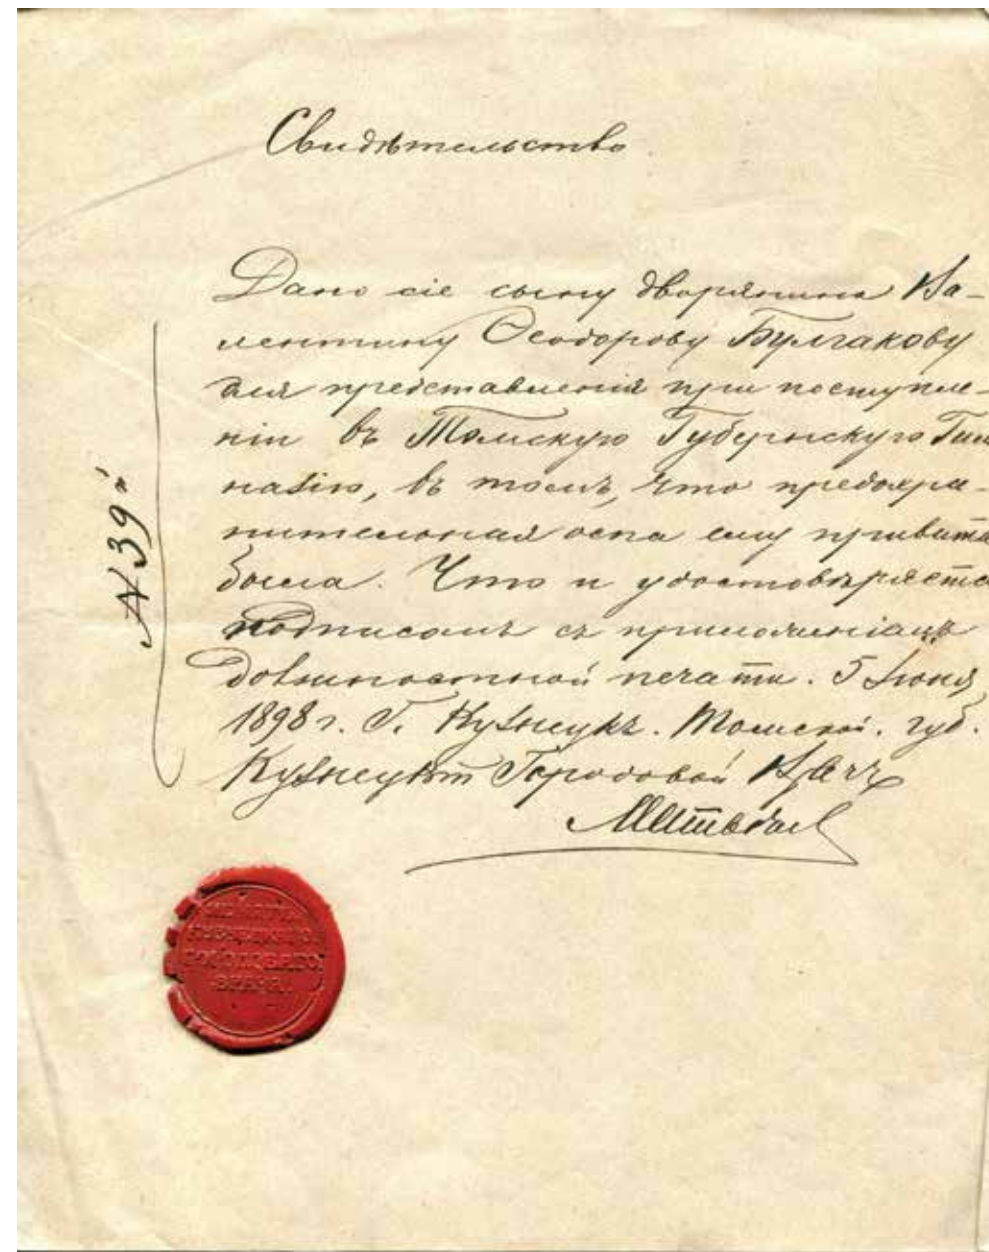 Свидѣтельство
Дано сіе сыну дворянина Ва-
лентину Ѳеодорову Булгакову
для представленія при поступле-
ніи въ Томскую Губернскую Гим
назію, въ томъ, что предохра-
нительная оспа ему привита
была. Что и удостовѣряется
подписомъ съ приложеніемъ
должностной печати. 5 Іюня
1898 г. Г. Кузнецкъ. Томской. губ.
Кузнецкій Городовой Врачъ
№ 39й
ПЕЧАТЬ
КУЗНЕЦКАГО
ГОРОДОВАГО
ВРАЧА